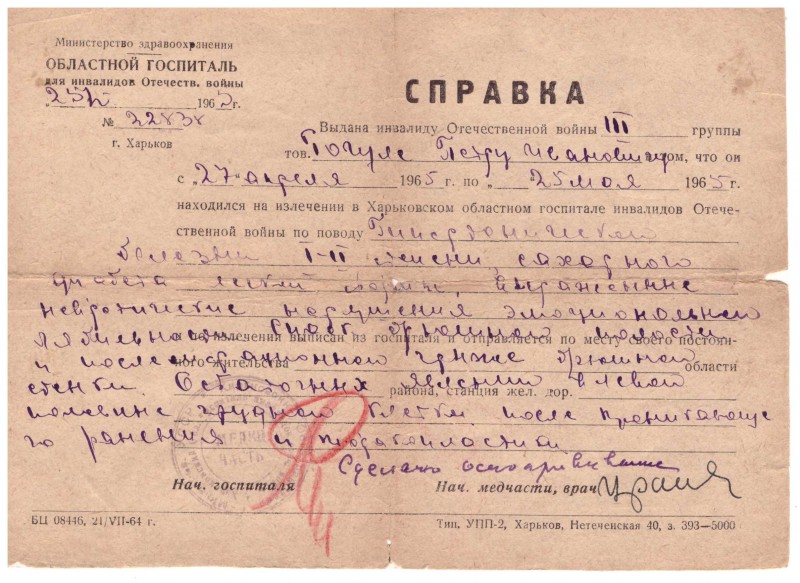 Министерство здравоохранения
ОБЛАСТНОЙ ГОСПИТАЛЬ
для инвалидов Отечеств. войны
"25/V 1965 г.
№ 22838
г. Харьков
СПРАВКА
Выдана инвалиду Отечественной войны III группы
тов. Петру Ивановичу том, что он
с „27" апреля 1965 г. по „25 мая 1965 г.
находился на излечении в Харьковском областном госпитале инвалидов Отече-
ственной войны по поводу Гипертонической
болезни I-II степени, сахарного
диабета легкой формы, выраженные
невротические нарушения эмоциональной
лябильности, брюшной полости
по излечении выписан из госпиталя и отправляется по месту своего постоян-
и грыже брюшной
ного жительства области
стенки. Остаточных явлений в левой
района, станция жел. дор.
половине грудной клетки после проникающе
го ранения и
МЕДИЦ
ЧАСТЬ
Сделано
Нач. госпиталя Нач. медчасти, врач
БЦ 08446, 21/VII-64 г. Тип. УПП-2, Харьков, Нетеченская 40, з. 393—5000